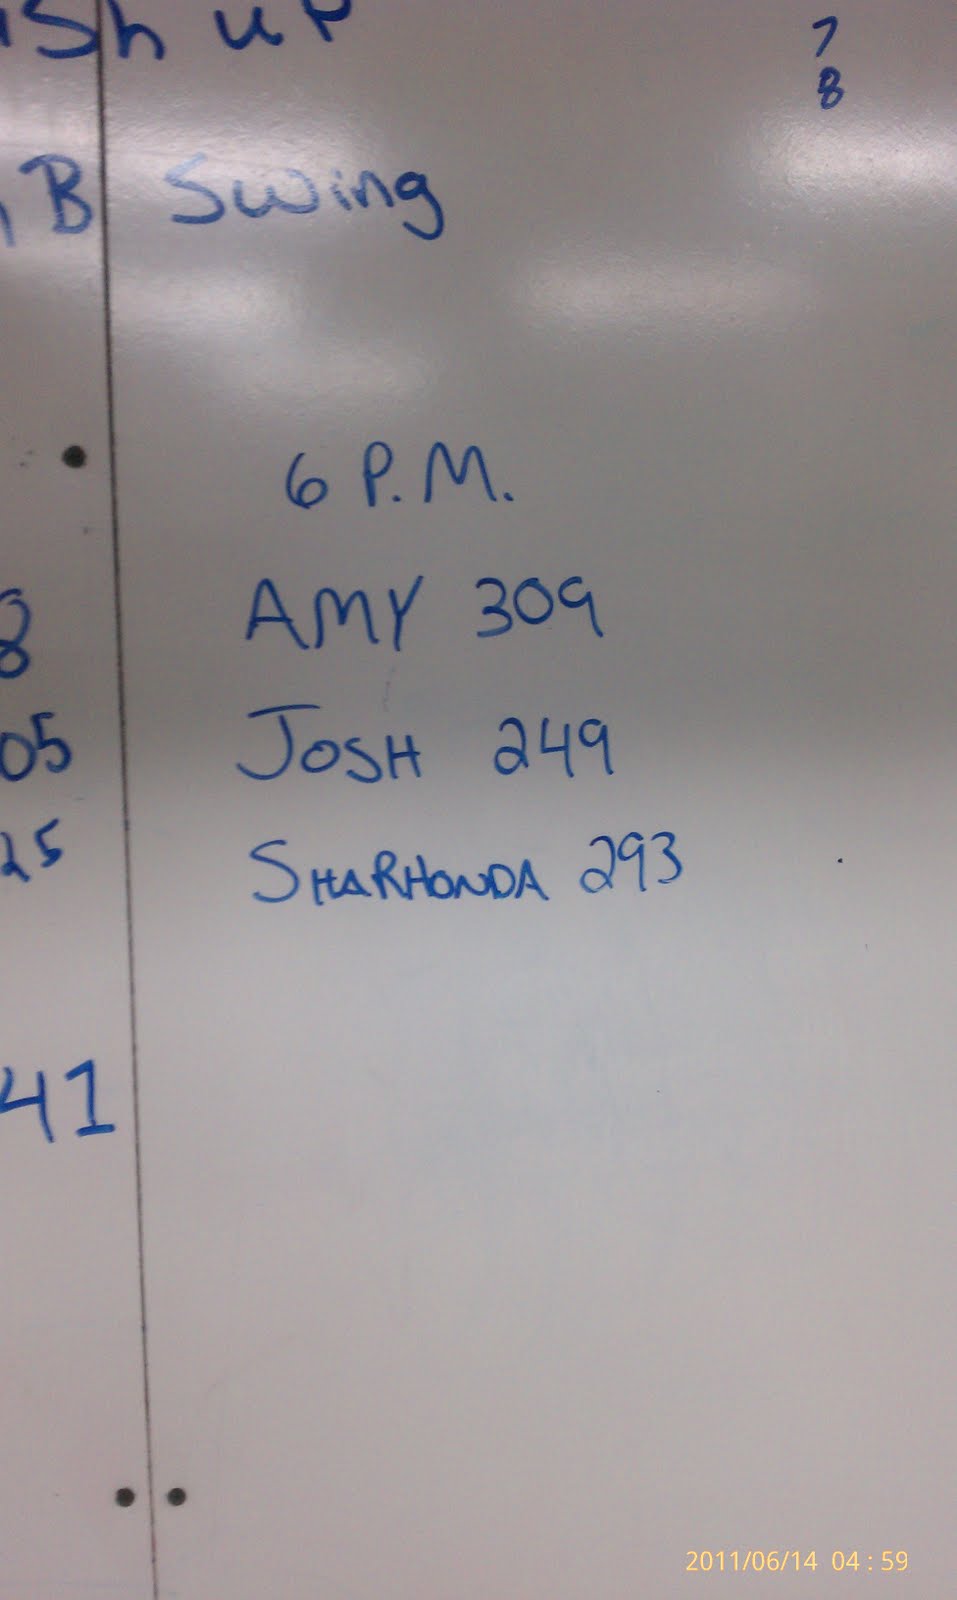 sh up
7
8
B Swing
6 P.M.
AMY 309
05 JOSH 249
25 SHARHONDA 293
41
2011/06/14 04:59